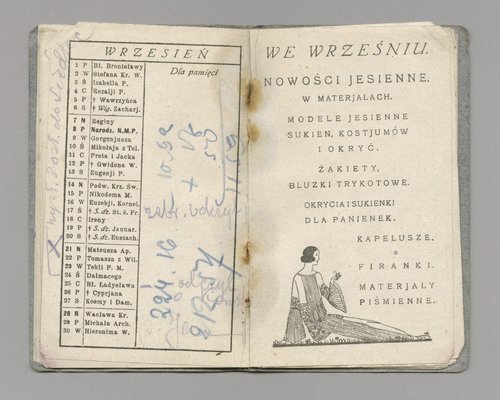 WRZESIEŃ
Dla pamięci
1 P Bł. Bronisławy
2 W Stefana Kr. W.
3 Ś Izabella P.
4 C Rozalji P.
5 P † Wawrzyńca
6 S † Wig. Zacharj.
7 N Reginy
8 P Narodz. N.M.P.
9 W Gorgonjusza
10 Ś Mikołaja z Tol.
11 C Prota i Jacka
12 P † Gwidona W.
13 S Eugenji P.
14 N Podw. Krz. Św.
15 P Nikodema M.
16 W Euzebji, Kornel.
17 Ś † S. dz. St. ś. Fr.
18 C Ireny
19 P † S. dz. Januar.
20 S † S. dz. Eustach.
21 N Mateusza Ap.
22 P Tomasza z Wil.
23 W Tekli P. M.
24 Ś Dalmacego
25 C Bł. Ładysława
26 P † Cyprjana
27 S Kosmy i Dam.
28 N Wacława Kr.
29 P Michała Arch.
30 W Hieronima W.
WE WRZEŚNIU.
NOWOŚCI JESIENNE.
W MATERJAŁACH.
MODELE JESIENNE
SUKIEN, KOSTJUMÓW
I OKRYĆ.
ŻAKIETY,
BLUZKI TRYKOTOWE.
OKRYCIA I SUKIENKI
DLA PANIENEK.
KAPELUSZE.
*
FIRANKI.
MATERJAŁY
PIŚMIENNE.